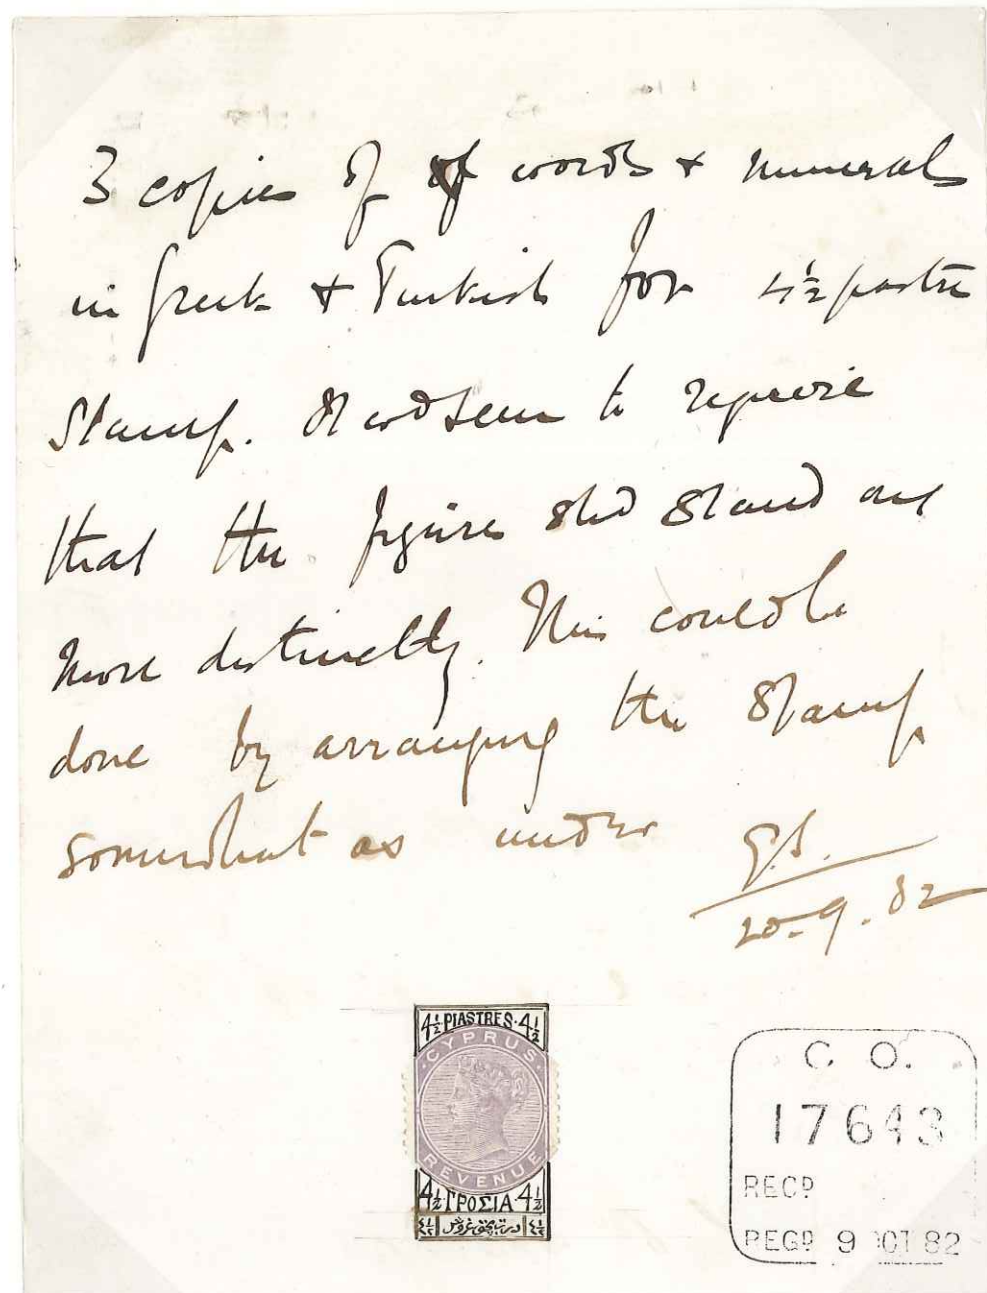 3 copies of of words & numerals
in Greek & Turkish for 4½ piastre
Stamp. It wd seem to require
that the figures shd stand out
more distinctly. This could be
done by arranging the stamp
somewhat as under
G.S.
20-9.82
4½ PIASTRES·4½
·CYPRUS·
REVENUE
4½ ΓΡΟΣΙΑ·4½
C. O.
17643
RECD
REGD 9 OCT 82